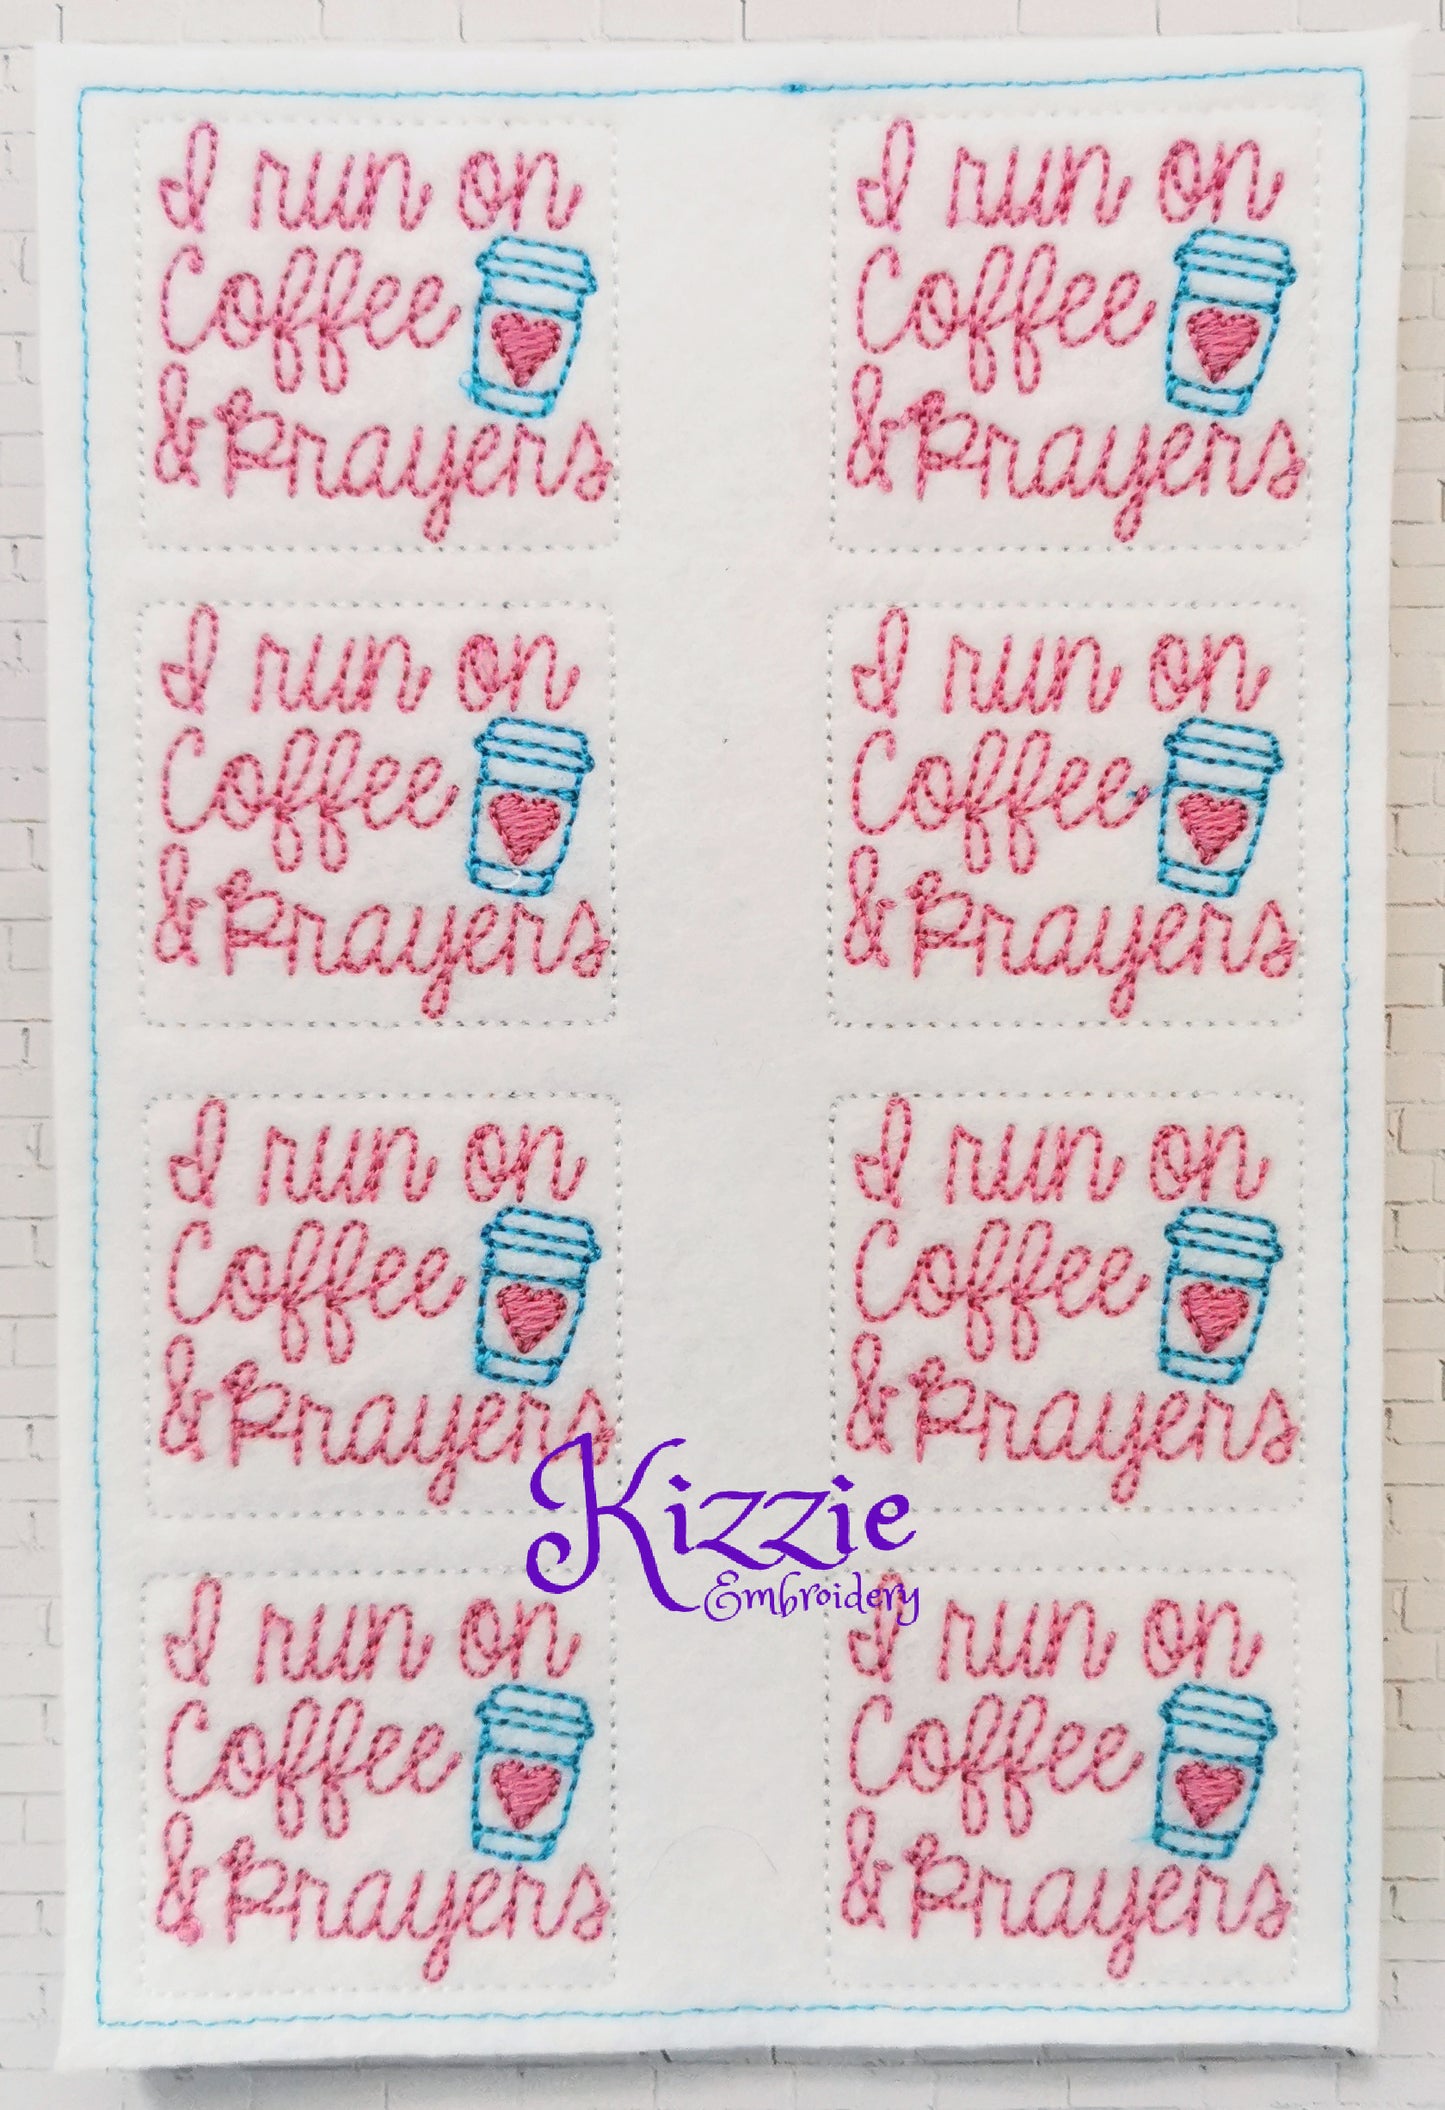 I run on
Coffee
& Prayers
I run on
Coffee
& Prayers
I run on
Coffee
& Prayers
I run on
Coffee
& Prayers
I run on
Coffee
& Prayers
I run on
Coffee
& Prayers
Kizzie
Embroidery
I run on
Coffee
& Prayers
I run on
Coffee
& Prayers